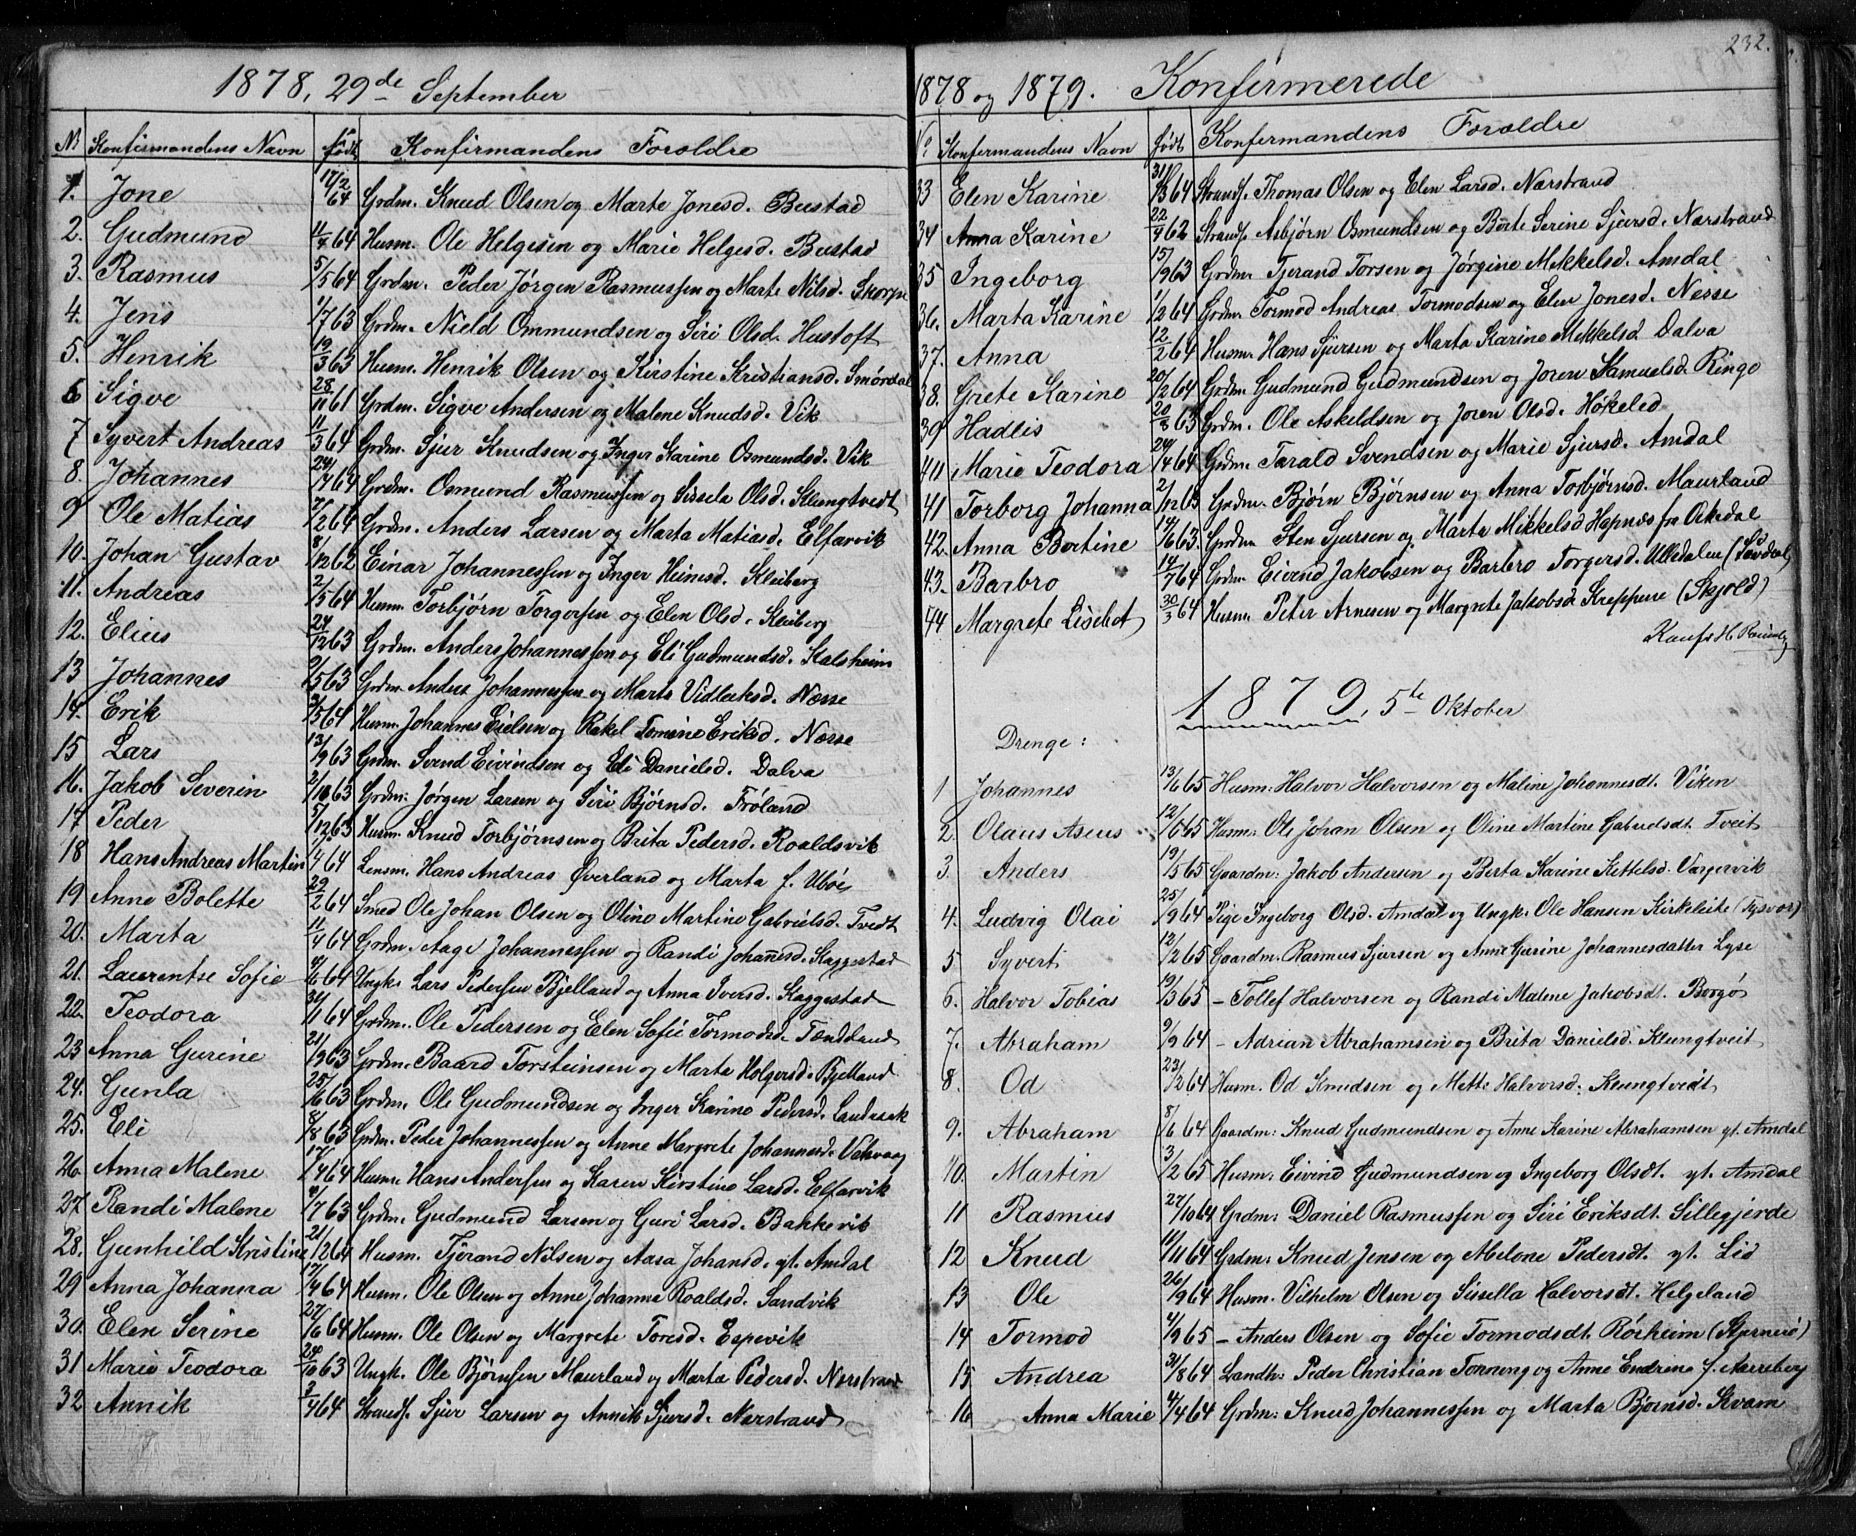 1878, 29de September
Nr Konfirmandens Navn født Konfirmandens Forældre
1. Jone 17/2 64 Grdm. Knud Olsen og Marte Jonesd. Bustad
2. Gudmund 11/4 64 Husm. Ole Helgesen og Marie Helgesd. Bustad
3. Rasmus 5/5 64 Grdm. Peder Jørgen Rasmussen og Marte Nilsd. Skorpe
4. Jens 1/7 63 Grdm. Nield Ommundsen og Siri Olsd. Hustoft
5. Henrik 19/3 63 Husm. Henrik Olsen og Kirstine Kristiansd. Smørdal
6 Sigve 28/11 61 Grdm. Sigve Andersen og Malene Knudsd. Vik
7 Syvert Andreas 11/3 64 Grdm. Sjur Knudsen og Inger Karine Osmundsd. Vik
8. Johannes 24/4 64 Grdm. Osmund Rasmussen og Sissela Olsd. Klungtvedt
9 Ole Matias 7/2 64 Grdm. Anders Larsen og Marta Matiasd. Elfarvik
10. Johan Gustav 8/12 62 Einar Johannessen og Inger Heinesd. Kleiberg
11. Andreas 2/5 64 Husm. Torbjørn Torgersen og Elen Olsd. Kleiberg
12. Elius 24/12 63 Grdm. Anders Johannessen og Eli Gudmundsd. Kalsheim
13 Johannes 9/5 63 Grdm. Anders Johannessen og Marta Vidleiksd. Nesse
14. Erik 3/5 64 Husm. Johannes Eielsen og Rakel Tomine Eriksd. Nesse
15 Lars 13/9 63 Grdm. Svend Eivindsen og Eli Danielsd. Dalva
16. Jakob Severin 2/10 63 Grdm. Jørgen Larsen og Siri Bjørnsd. Frøland
17 Peder 5/12 63 Husm. Knud Torbjørnsen og Brita Pedersd. Roaldsvik
18 Hans Andreas Martin /4 64 Lensm. Hans Andreas Øverland og Marta f. Ubøe
19 Anne Bolette 29/2 64 Smed Ole Johan Olsen og Oline Martine Gabrielsd. Tvedt
20. Marta 11/4 64 Grdm. Aage Johannessen og Randi Johannesd. Skaggestad
21. Laurentse Sofie 4/6 64 Ungk. Lars Pedersen Bjelland og Anna Iversd. Skaggestad
22. Teodora 31/1 64 Grdm. Ole Pedersen og Elen Sofie Tormodsd. Tendland
23 Anna Gurine 21/9 63 Grdm. Baard Torsteinsen og Marta Holgersd. Bjelland
24. Gunla 25/6 63 Grdm. Ole Gudmundsen og Inger Karine Pedersd. Landraak
25. Eli 8/8 63 Grdm. Peder Johannessen og Anne Margrete Johannesd. Vatsvaag
26. Anna Malene 17/4 64 Husm. Hans Andersen og Karen Kirstine Larsd. Elfarvik
27. Randi Malene 9/7 63 Grdm. Gudmund Larsen og Guri Larsd. Bakkevik
28. Gunhild Kristine 21/12 64 Husm. Tjerand Nilsen og Aasa Johansd. yt. Amdal
29 Anna Johanna 17/9 64 Husm. Ole Olsen og Anne Johanne Roaldsd. Sandvik
30. Elen Serine 27/6 64 Husm. Ole Olsen og Margrete Toresd. Espevik
31 Marie Teodora 24/10 63 Ungk. Ole Bjørnsen Maurland og Marta Pedersd. Nerstrand
32 Annik 3/4 64 Strands. Sjur Larsen og Annik Sjursd. Nerstrand
232.
1878 og 1879. Konfirmerede
No. Konfirmandens Navn født Konfirmandens Forældre
33 Elen Karine 31/3 64 Strands. Thomas Olsen og Elen Larsd. Nerstrand
34 Anna Karine 22/9 62 Strands. Asbjørn Osmundsen og Børte Serine Sjursd. Nerstrand
35 Ingeborg 15/9 63 Grdm. Tjerand Torsen og Jørgine Mikkelsd. Amdal
36. Marta Karine 1/12 64 Grdm. Tormod Andreas Tormodsen og Elen Jonesd. Nesse
37. Anna 12/2 64 Husm. Hans Sjursen og Marta Karine Mikkelsd. Dalva
38. Grete Karine 20/2 64 Grdm. Gudmund Gudmundsen og Joren Samuelsd. Ringe
39 Hadlis 20/3 63 Grdm. Ole Askeldsen og Joren Olsd. Høkeled
40 Marie Teodora 24/4 64 Grdm. Tarald Svendsen og Marie Sjursd. Amdal
41 Torborg Johanna 2/12 63 Grdm. Bjørn Bjørnsen og Anna Torbjørnsd. Maurland
42. Anna Bertine 14/6 63. Grdm. Sten Sjursen og Marta Mikkelsd Hapnes fra Økedal
43. Barbro 14/7 64 Grdm. Eivend Jakobsen og Barbro Torgersd. Ulledalen (Søvdal)
44 Margrete Lisebet 30/3 64 Husm. Peter Arnesen og Margrete Jakobsd Kreppene (Skjold)
1879, 5te Oktober
Drenge:
1 Johannes 13/6 65 Husm: Halvor Halvorsen og Maline Johannesdt. Viken
2. Olaus Aseus 12/6 65 Husm: Ole Johan Olsen og Oline Martine Gabrielsdt. Tveit
3. Anders 19/5 65 Gaardm: Jakob Andersen og Berta Karine Kittelsd. Vargervik
4. Ludvig Olai 25/9 64 Pige Ingeborg Olsd. Amdal og Ungk: Ole Hansen Kirkeleite (Tysvær)
5 Syvert 12/2 65 Gaardm. Rasmus Sjursen og Anne Gurine Johannesdatter Lyse
6. Halvor Tobias 19/3 65 – Tollef Halvorsen og Randi Malene Jakobsdt. Borgø
7. Abraham 9/9 64 – Adrian Abrahamsen og Brita Danielsd. Klungtveit
8. Od 23/2 64 Husm. Od Knudsen og Mette Halvorsd. Klungtvedt
9. Abraham 8/6 64 Gaardm: Knud Gudmundsen og Anne Karine Abrahamsen yt. Amdal
10. Martin 3/2 65 Husm: Eivind Gudmundsen og Ingeborg Olsdt. yt. Amdal
11 Rasmus 27/10 64 Grdm: Daniel Rasmussen og Siri Eriksdt. Sillegjerde
12 Knud 11/11 64 Grdm: Knud Jensen og Melone Pedersdt. yt. Lid
13 Ole 26/9 64 Husm. Vilhelm Olsen og Sissella Halvorsdt. Helgeland
14 Tormod 4/9 65 – Anders Olsen og Sofie Tormodsdt. Rørheim (Stjernerø)
15 Andrea 31/8 64 Landh: Peder Christian Tonning og Anne Endrine f. Aareberg
16 Anna Marie 4/4 64 Grdm: Knud Johannessen og Marta Bjørnsd. Kvam